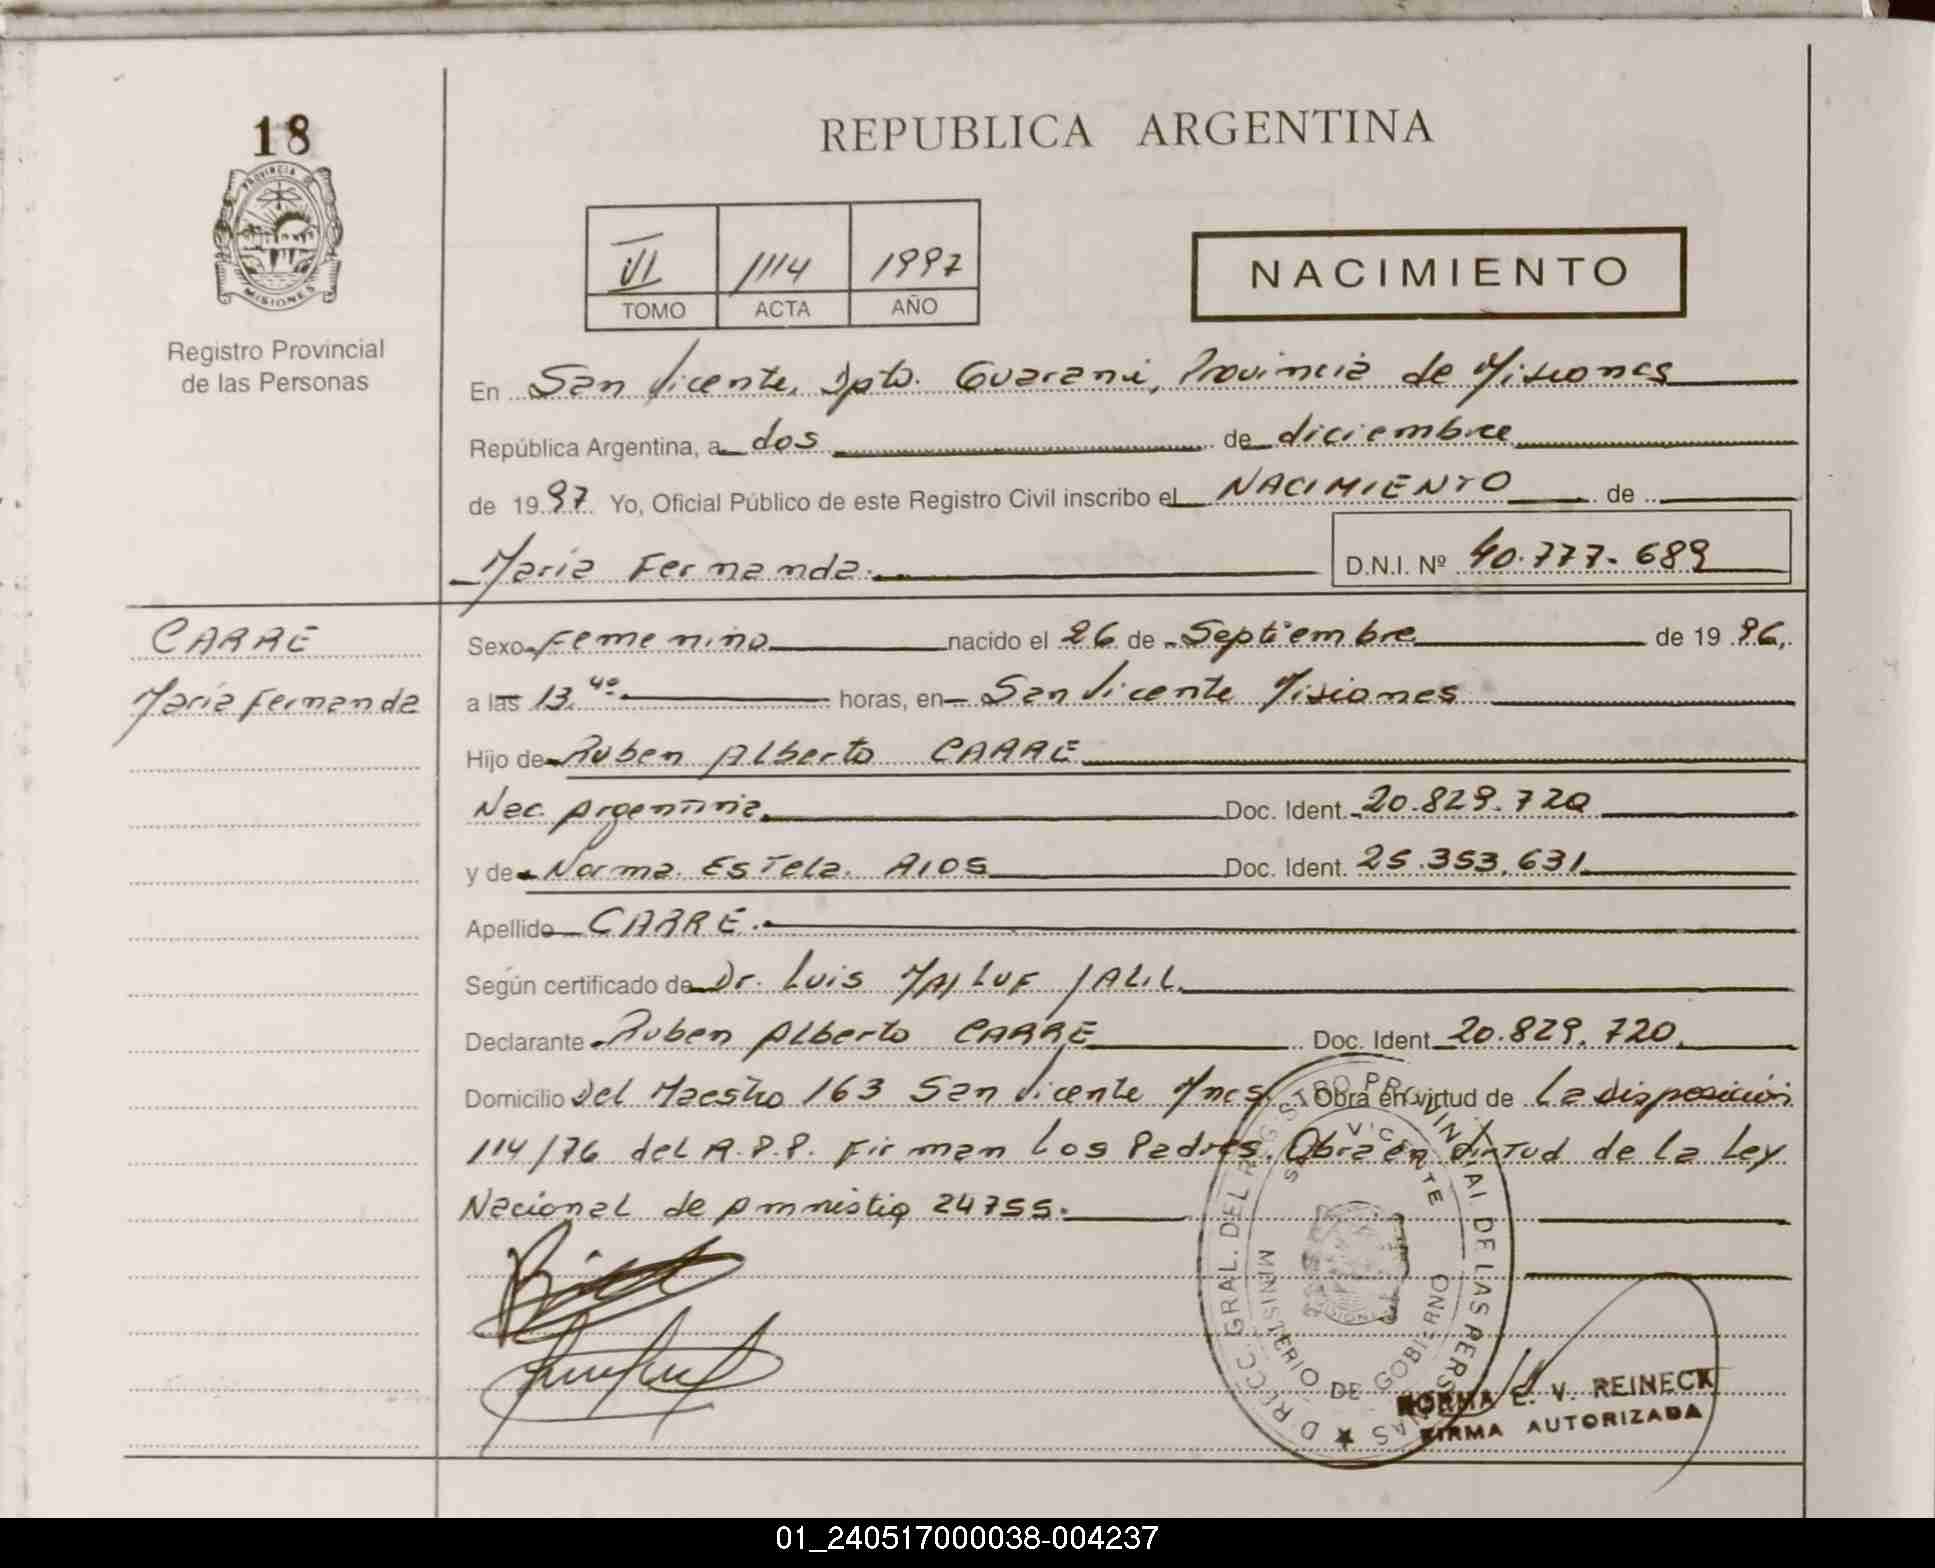 18
PROVINCIA DE
MISIONES
Registro Provincial
de las Personas
REPUBLICA ARGENTINA
VI 1114 1997
TOMO ACTA AÑO
NACIMIENTO
En San Vicente, Dpto. Guarani, Provincia de Misiones
República Argentina, a dos de diciembre
de 1997. Yo, Oficial Público de este Registro Civil inscribo el NACIMIENTO de
María Fernanda. D.N.I. Nº 40.777.689
CARRE
María Fernanda
Sexo Femenino nacido el 26 de Septiembre de 1996.
a las 13,40 horas, en San Vicente Misiones
Hijo de Ruben Alberto CARRE
Nac. Argentina. Doc. Ident. 20.829.720
y de Norma Estela AIOS Doc. Ident. 25.353.631
Apellido CARRE.
Según certificado de Dr. Luis MALUF JALIL.
Declarante Ruben Alberto CARRE Doc. Ident. 20.829.720.
Domicilio Del Maestro 163 San Vicente Mnes. Obra en virtud de La disposición
114/76 del R.P.P. Firman los Padres. Obra en virtud de la Ley
Nacional de Amnistia 24755.
DIRECC. GRAL. DEL REGISTRO PROVINCIAL DE LAS PERSONAS
VICENTE
MINISTERIO DE GOBIERNO
NORMA E. V. REINECK
FIRMA AUTORIZADA
01_240517000038-004237